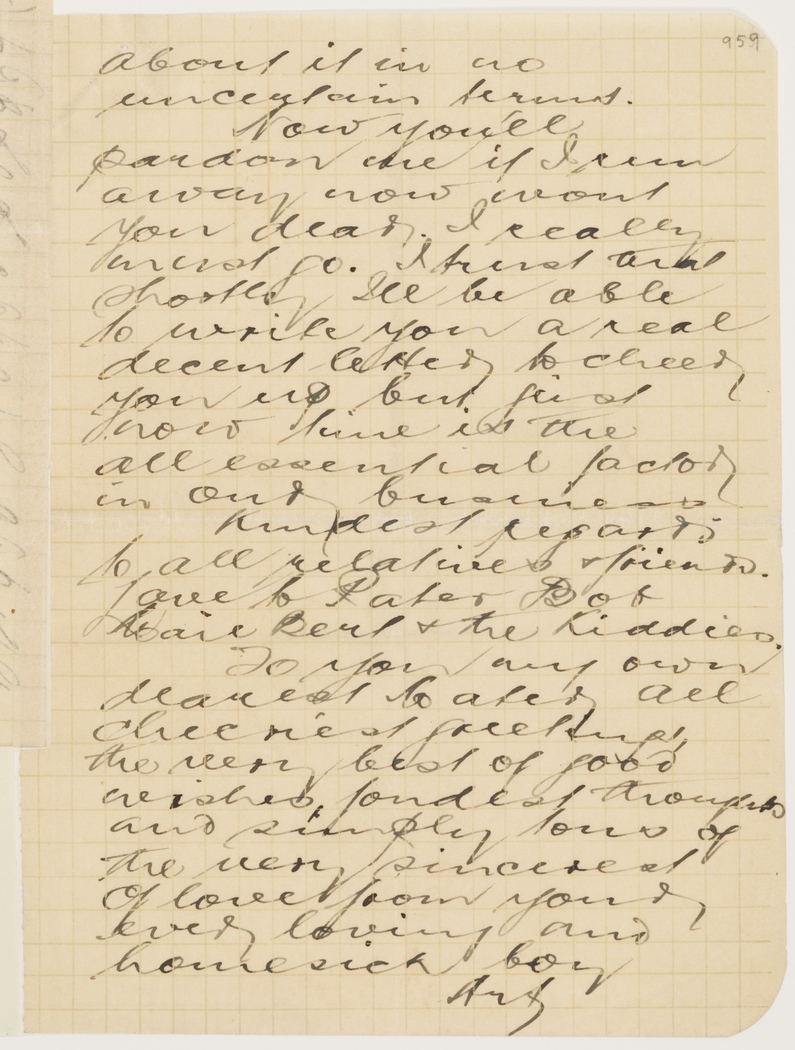 959
about it in no
uncertain terms.
Now you'll
pardon me if I run
away now wont
you dear. I really
must go. I trust that
shortly I'll be able
to write you a real
decent letter to cheer
you up but just
now time is the
all essential factor
in our business
Kindest regards
to all relatives & friends.
Love to Pater Bob
Bert & the Kiddies.
To you my own
dearest Mater all
cheeriest greetings,
the very best of good
wishes, fondest thoughts
and simply tons of
the very sincerest
of love from your
ever loving and
homesick boy
Art